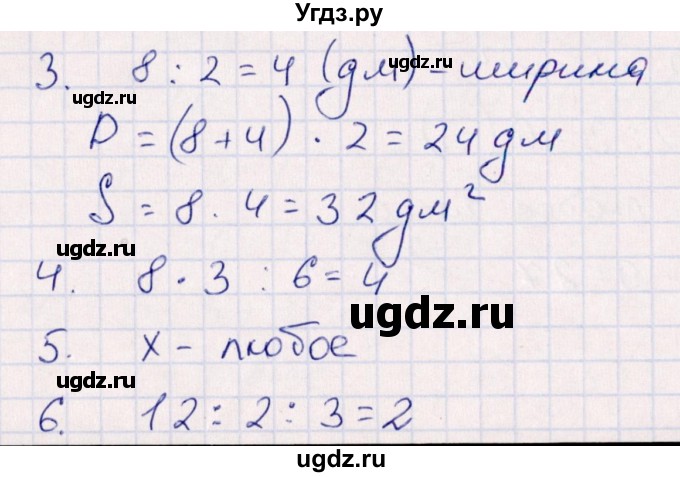 Угдз.ру
3. 8 : 2 = 4 (дм) - ширина
ugdz.ru
P = (8 + 4) · 2 = 24 дм
S = 8 · 4 = 32 дм²
ugdz.ru
4. 8 · 3 : 6 = 4
ugdz.ru
5. x - любое
ugdz.ru
6. 12 : 2 : 3 = 2
ugdz.ru